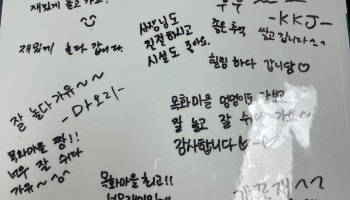 재밌게 놀다 가요!
재밌게 놀다 갑니다.
사장님도
친절하시고
시설도 좋아요.
-KKJ-
좋은 추억
쌓고 갑니다^^
힐링 하다 갑니당♡
잘 놀다 가유~~
-마오리-
목화마을 짱!!
너무 잘 쉬다
가유~^^
목화마을
잘 놀고 잘 쉬다 가요~
감사합니다♡
목화마을 최고!!